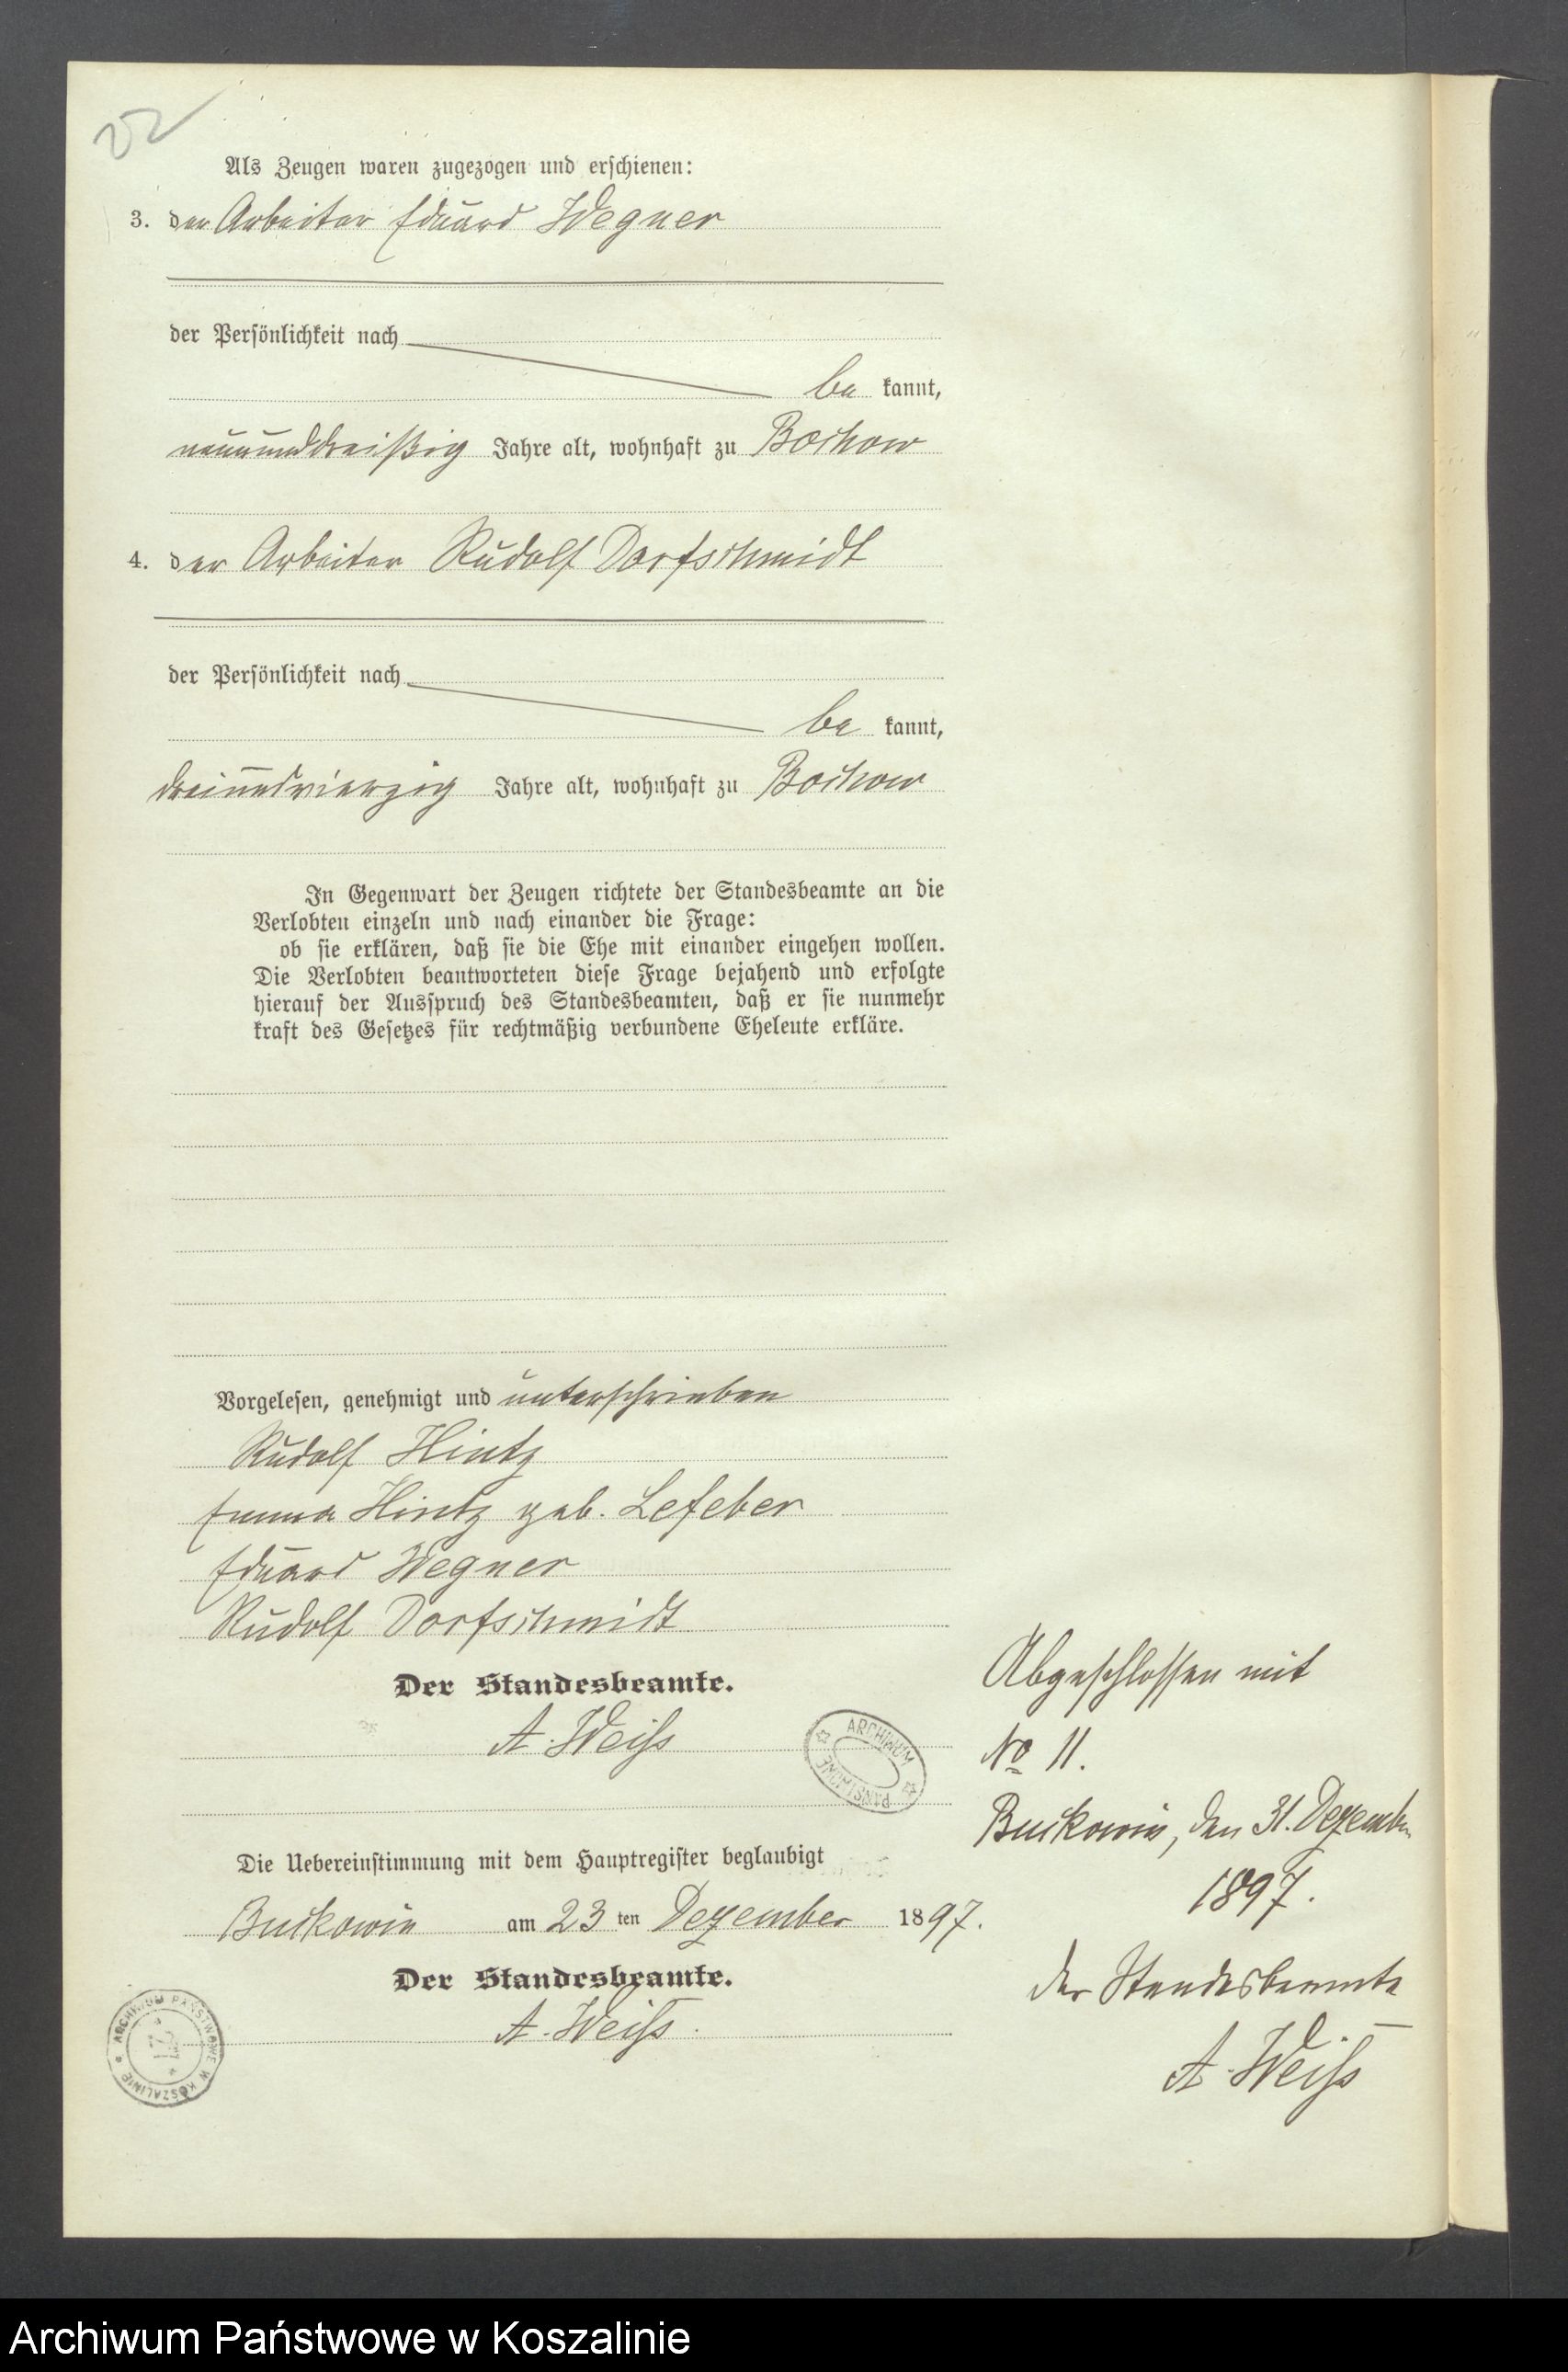 22
Als Zeugen waren zugezogen und erschienen:
3. der Arbeiter Eduard Wegner
der Persönlichkeit nach
be kannt,
neununddreißig Jahre alt, wohnhaft zu Bochow
4. der Arbeiter Rudolf Dorfschmidt
der Persönlichkeit nach
be kannt,
dreiundvierzig Jahre alt, wohnhaft zu Bochow
In Gegenwart der Zeugen richtete der Standesbeamte an die
Verlobten einzeln und nach einander die Frage:
ob sie erklären, daß sie die Ehe mit einander eingehen wollen.
Die Verlobten beantworteten diese Frage bejahend und erfolgte
hierauf der Ausspruch des Standesbeamten, daß er sie nunmehr
kraft des Gesetzes für rechtmäßig verbundene Eheleute erkläre.
Vorgelesen, genehmigt und unterschrieben
Rudolf Hintz
Emma Hintz geb. Lefeber
Eduard Wegner
Rudolf Dorfschmidt
Der Standesbeamte.
A. Weiss
ARCHIWUM PAŃSTWOWE
Die Uebereinstimmung mit dem Hauptregister beglaubigt
Buckowin am 23 ten Dezember 1897.
Der Standesbeamte.
A. Weiss.
ARCHIWUM PAŃSTWOWE W KOSZALINIE
Abgeschlossen mit
No 11.
Buckowin, den 31. Dezember
1897.
Der Standesbeamte
A. Weiss
Archiwum Państwowe w Koszalinie